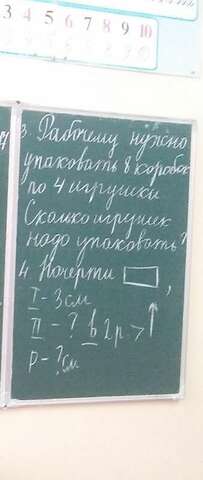 3 4 5 6 7 8 9 10
3. Рабочему нужно
упаковать 8 коробок
по 4 игрушки.
Сколько игрушек
надо упаковать?
4. Начерти ▭,
I - 3 см
II - ? в 2 р. > ↑
P - ? см